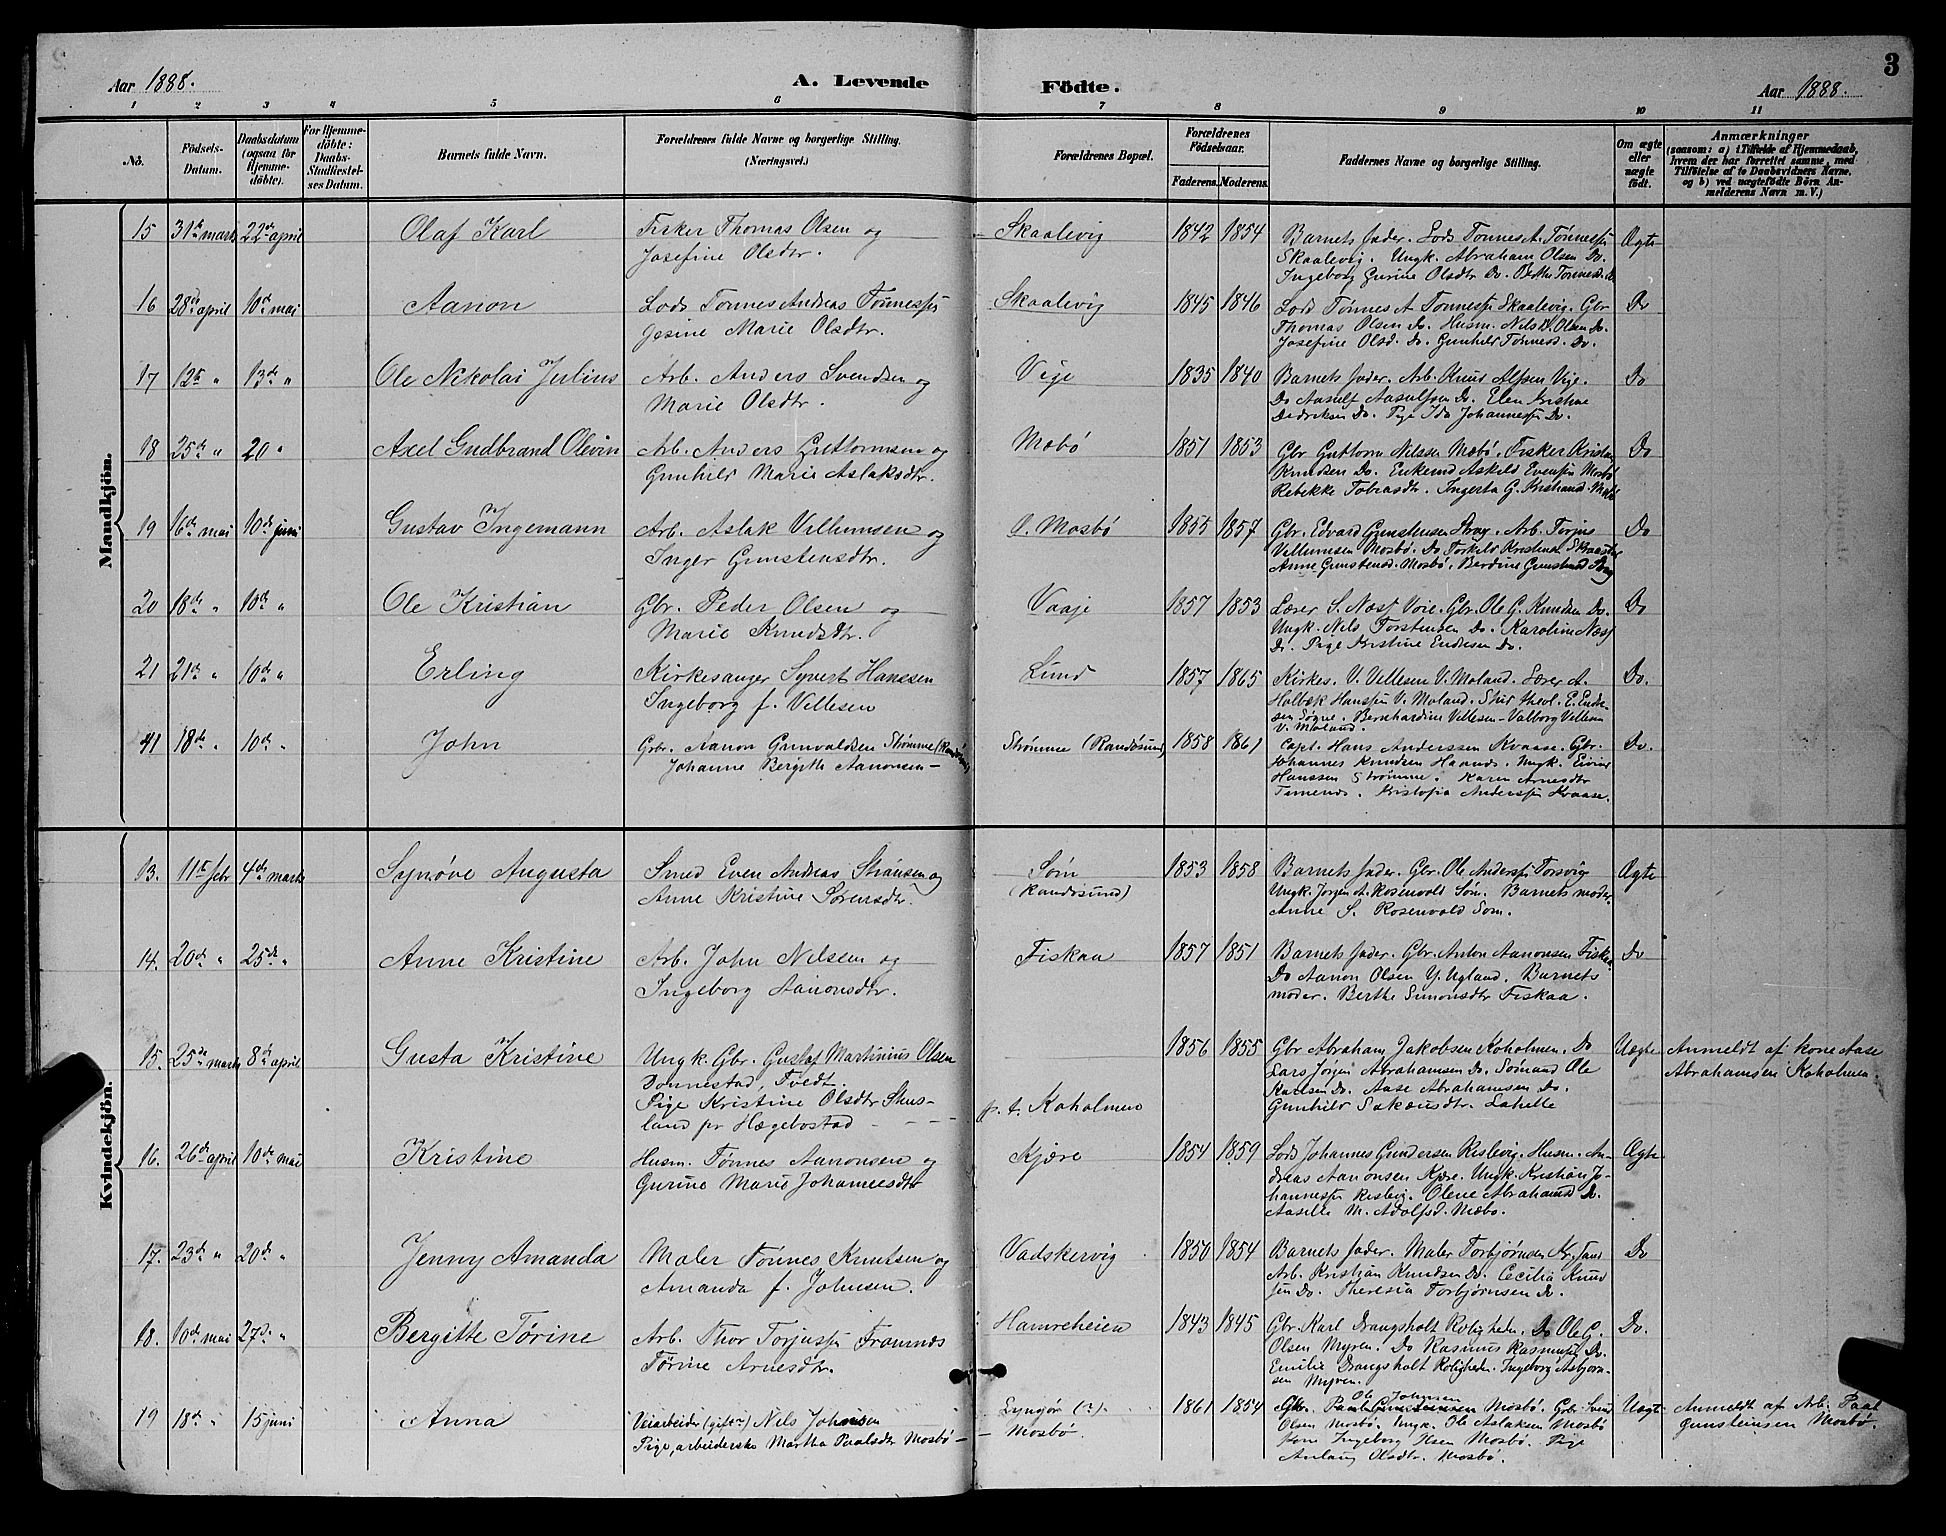 3
Aar 1888.
A. Levende Födte.
Aar 1888.
1 2 3 4 5 6 7 8 9 10 11
No. Födsels-Datum. Daabsdatum (ogsaa for Hjemme-döbte). For Hjemme-döbte: Daabs-Stadfæstel-ses Datum. Barnets fulde Navn. Forældrenes fulde Navne og borgerlige Stilling. (Næringsvei.) Forældrenes Bopæl. Forældrenes Födselsaar. Faderens. Moderens. Faddernes Navne og borgerlige Stilling. Om ægte eller uægte født. Anmærkninger
(saasom: a) i Tilfælde af Hjemmedaab,
hvem der har forrettet samme, med
Tilföielse af to Daabsvidners Navne,
og b) ved uægtefödte Börn An-
melderens Navn m. V.)
Mandkjön.
15 31te marts 22de april Olaf Karl Fisker Thomas Olsen og
Josefine Olsdtr. Skaalevig 1842 1854 Barnets fader. Lods Tønnes A. Tønness.
Skaalevig. Ungk. Abraham Olsen Do.
Ingeborg Gurine Olsdtr Do. Ægte
16 28de april 10de mai Aanon Lods Tønnes Andreas Tønness.
Gesine Marie Olsdtr. Skaalevig 1845 1846 Lods Tønnes A Tønness. Skaalevig. Gbr
Thomas Olsen Do. Husm. Nils Olsen Do.
Josefine Olsd. Do. Gunhild Tønnesd. Do. Do
17 12te " 13de " Ole Nikolai Julius Arb. Anders Svendsen og
Marie Olsdtr. Vige 1835 1840 Barnets fader. Arb. Knud Alfsen Vige.
Do Aasulf Aasulfsen Do. Elen Kristine
Dedriksen Do. Pige Ida Johanness. Do. Do
18 25de " 20 " Axel Gudbrand Olevin Arb. Anders Guttormsen og
Gunhild Marie Aslaksdtr. Mæbø 1851 1853 Gbr Guttorm Nilssen Mæbø. Fisker Kristen
Knudsen Do. Enkemd Askild Evensen Mosbø
Rebekke Tobiasdtr. Ingerta G. Do
19 16de mai 10de juni Gustav Ingemann Arb. Aslak Villumsen og
Inger Gunstensdtr. Ø. Mosbø 1855 1857 Gbr. Edvard Gunstensen Stray. Arb. Torjus
Villumsen Mosbø. Do Torkild Kristensen
Anne Gunstensd. Mosbø. Berdine Gunstensd Stray Do
20 18de " 10de " Ole Kristian Gbr. Peder Olsen og
Marie Knudsdtr. Vaaje 1857 1853 Lærer S. Næss Voie. Gbr. Ole G. Knudsen Do.
Ungk. Nils Torstensen Do. Karoline Næss
Do. Pige Kristine Do. Do
21 21de " 10de " Erling Kirkesanger Syvert Hanssen
Ingeborg f. Vellesen Lund 1857 1865 Kirkes. V. Vellesen V. Moland. Lærer A.
Holbæk Hanss. V. Moland. Stud theol. E. Ende-
sen Søgne. Bernhardine Vellesen. Valborg Vellesen
V. Moland. Do.
41 18de " 10de " John Gbr. Aanon Gunvaldsen Strømme (Randøsund)
Johanne Bergitte Aanonsen Strømme (Randøsund) 1858 1861 Capt. Hans Anderssen Kvaase. Gbr.
Johannes Knudsen Haanes. Ungk. Eivind
Hanssen Strømme. Karen Arnesdtr
Timenes. Kristofia Anderss. Kvaase. Do.
Kvindekjön.
13. 11te febr 4de marts Synøve Augusta Smed Even Andreas Stiansen og
Anne Kristine Sørensdtr. Søm
(Randøsund) 1853 1858 Barnets fader. Gbr. Ole Anderss. Torsvig
Ungk. Jørgen A. Rosenvold Søm. Barnets moder.
Anne S. Rosenvold Søm. Ægte
14. 20de " 25de " Anne Kristine Arb. John Nilssen og
Ingeborg Aanonsdtr. Fiskaa 1857 1851 Barnets fader. Gbr. Anton Aanonsen Fiskaa.
Do Aanon Olsen Y. Ugland. Barnets
moder. Berthe Simonsdtr Fiskaa. Do
15. 25de marts 8de april Gusta Kristine Ungk. Gbr. Gustaf Martinius Olsen
Donnestad, Tvedt.
Pige Kristine Olsdtr Skus-
land pr Hægebostad p. t. Koholmen 1856 1855 Gbr Abraham Jakobsen Koholmen. Do
Lars Jørgen Abrahamsen Do. Sømand Ole
Karlsen Do. Aase Abrahamsen Do.
Gunhild Sakeusdtr. Lahelle Uægte Anmeldt af kone Aase
Abrahamsen Koholmen.
16. 26de april 10de mai Kristine Husm. Tønnes Aanonsen og
Gurine Marie Johannesdtr Kjære 1854 1859 Lods Johannes Gundersen Risevig. Husm. An-
dreas Aanonsen Kjære. Ungk. Kristian Jo-
hanness. Olene Abrahamsd Do.
M. Adolfsd. Mæbø. Ægte
17. 23de " 20de " Jenny Amanda Maler Tønnes Knutsen og
Amanda f. Johnsen. Vadskervig 1850 1854 Barnets fader. Maler Torbjørnsen
Arb. Kristian Knudsen Do. Cecilia Knud-
sen Do. Theresia Torbjørnsen Do. Do
18. 10de mai 27de " Bergitte Tørine Arb. Thor Torjuss. Fromnes
Tørine Arnesdtr. Hamreheien 1843 1845 Gbr. Karl Drangsholt Roligheden. Do Ole G.
Olsen Myren. Do Rasmus Rasmuss. Do.
Emilie Drangsholt Roligheden. Ingeborg Asbjørn-
sen Myren. Do.
19 18de " 15 juni Anna Veiarbeider (gift?) Nils Johnsen
Pige, arbeiderske Martha Paalsdtr Mosbø Lyngør (?)
Mosbø. 1861 1854 Ole Johnsen
Gbr. Paal Gunsteinsen Mosbø. Gbr. Svend
Olsen Mosbø. Ungk. Ole Aslaksen Mosbø
Kone Ingeborg Mosbø. Pige
Anlaug Olsdtr. Mosbø. Uægte Anmeldt af Arb. Paal
Gunsteinsen Mosbø.